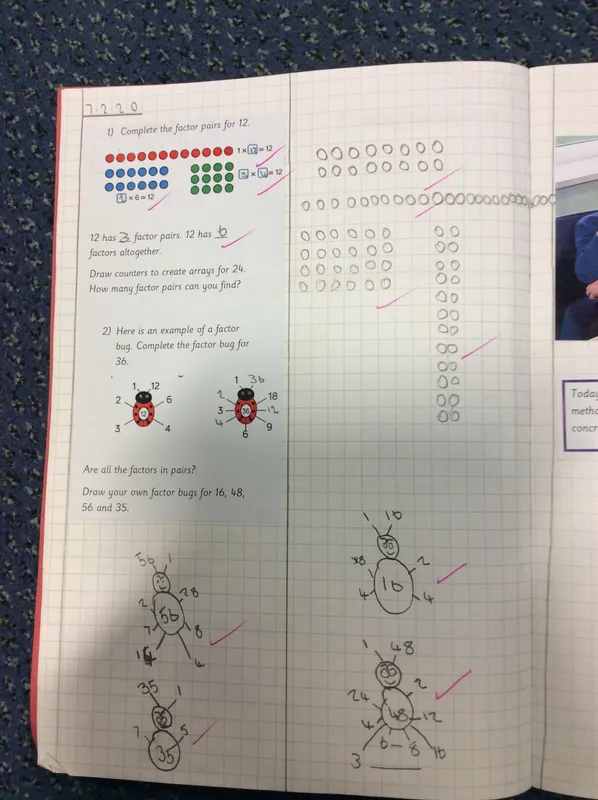 7.2.20
1) Complete the factor pairs for 12.
1 × 12 = 12
3 × 4 = 12
2 × 6 = 12
12 has 3 factor pairs. 12 has 6
factors altogether.
Draw counters to create arrays for 24.
How many factor pairs can you find?
2) Here is an example of a factor
bug. Complete the factor bug for
36.
1 12
2 6
12
3 4
1 36
2 18
3 36 12
4 9
6
Are all the factors in pairs?
Draw your own factor bugs for 16, 48,
56 and 35.
56 1
28
2 56
7 8
14 4
35 1
7 5
35
1 16
8 2
16
4 4
1 48
2
24
48 12
4
6 - 8 16
3
Today
metho
concr